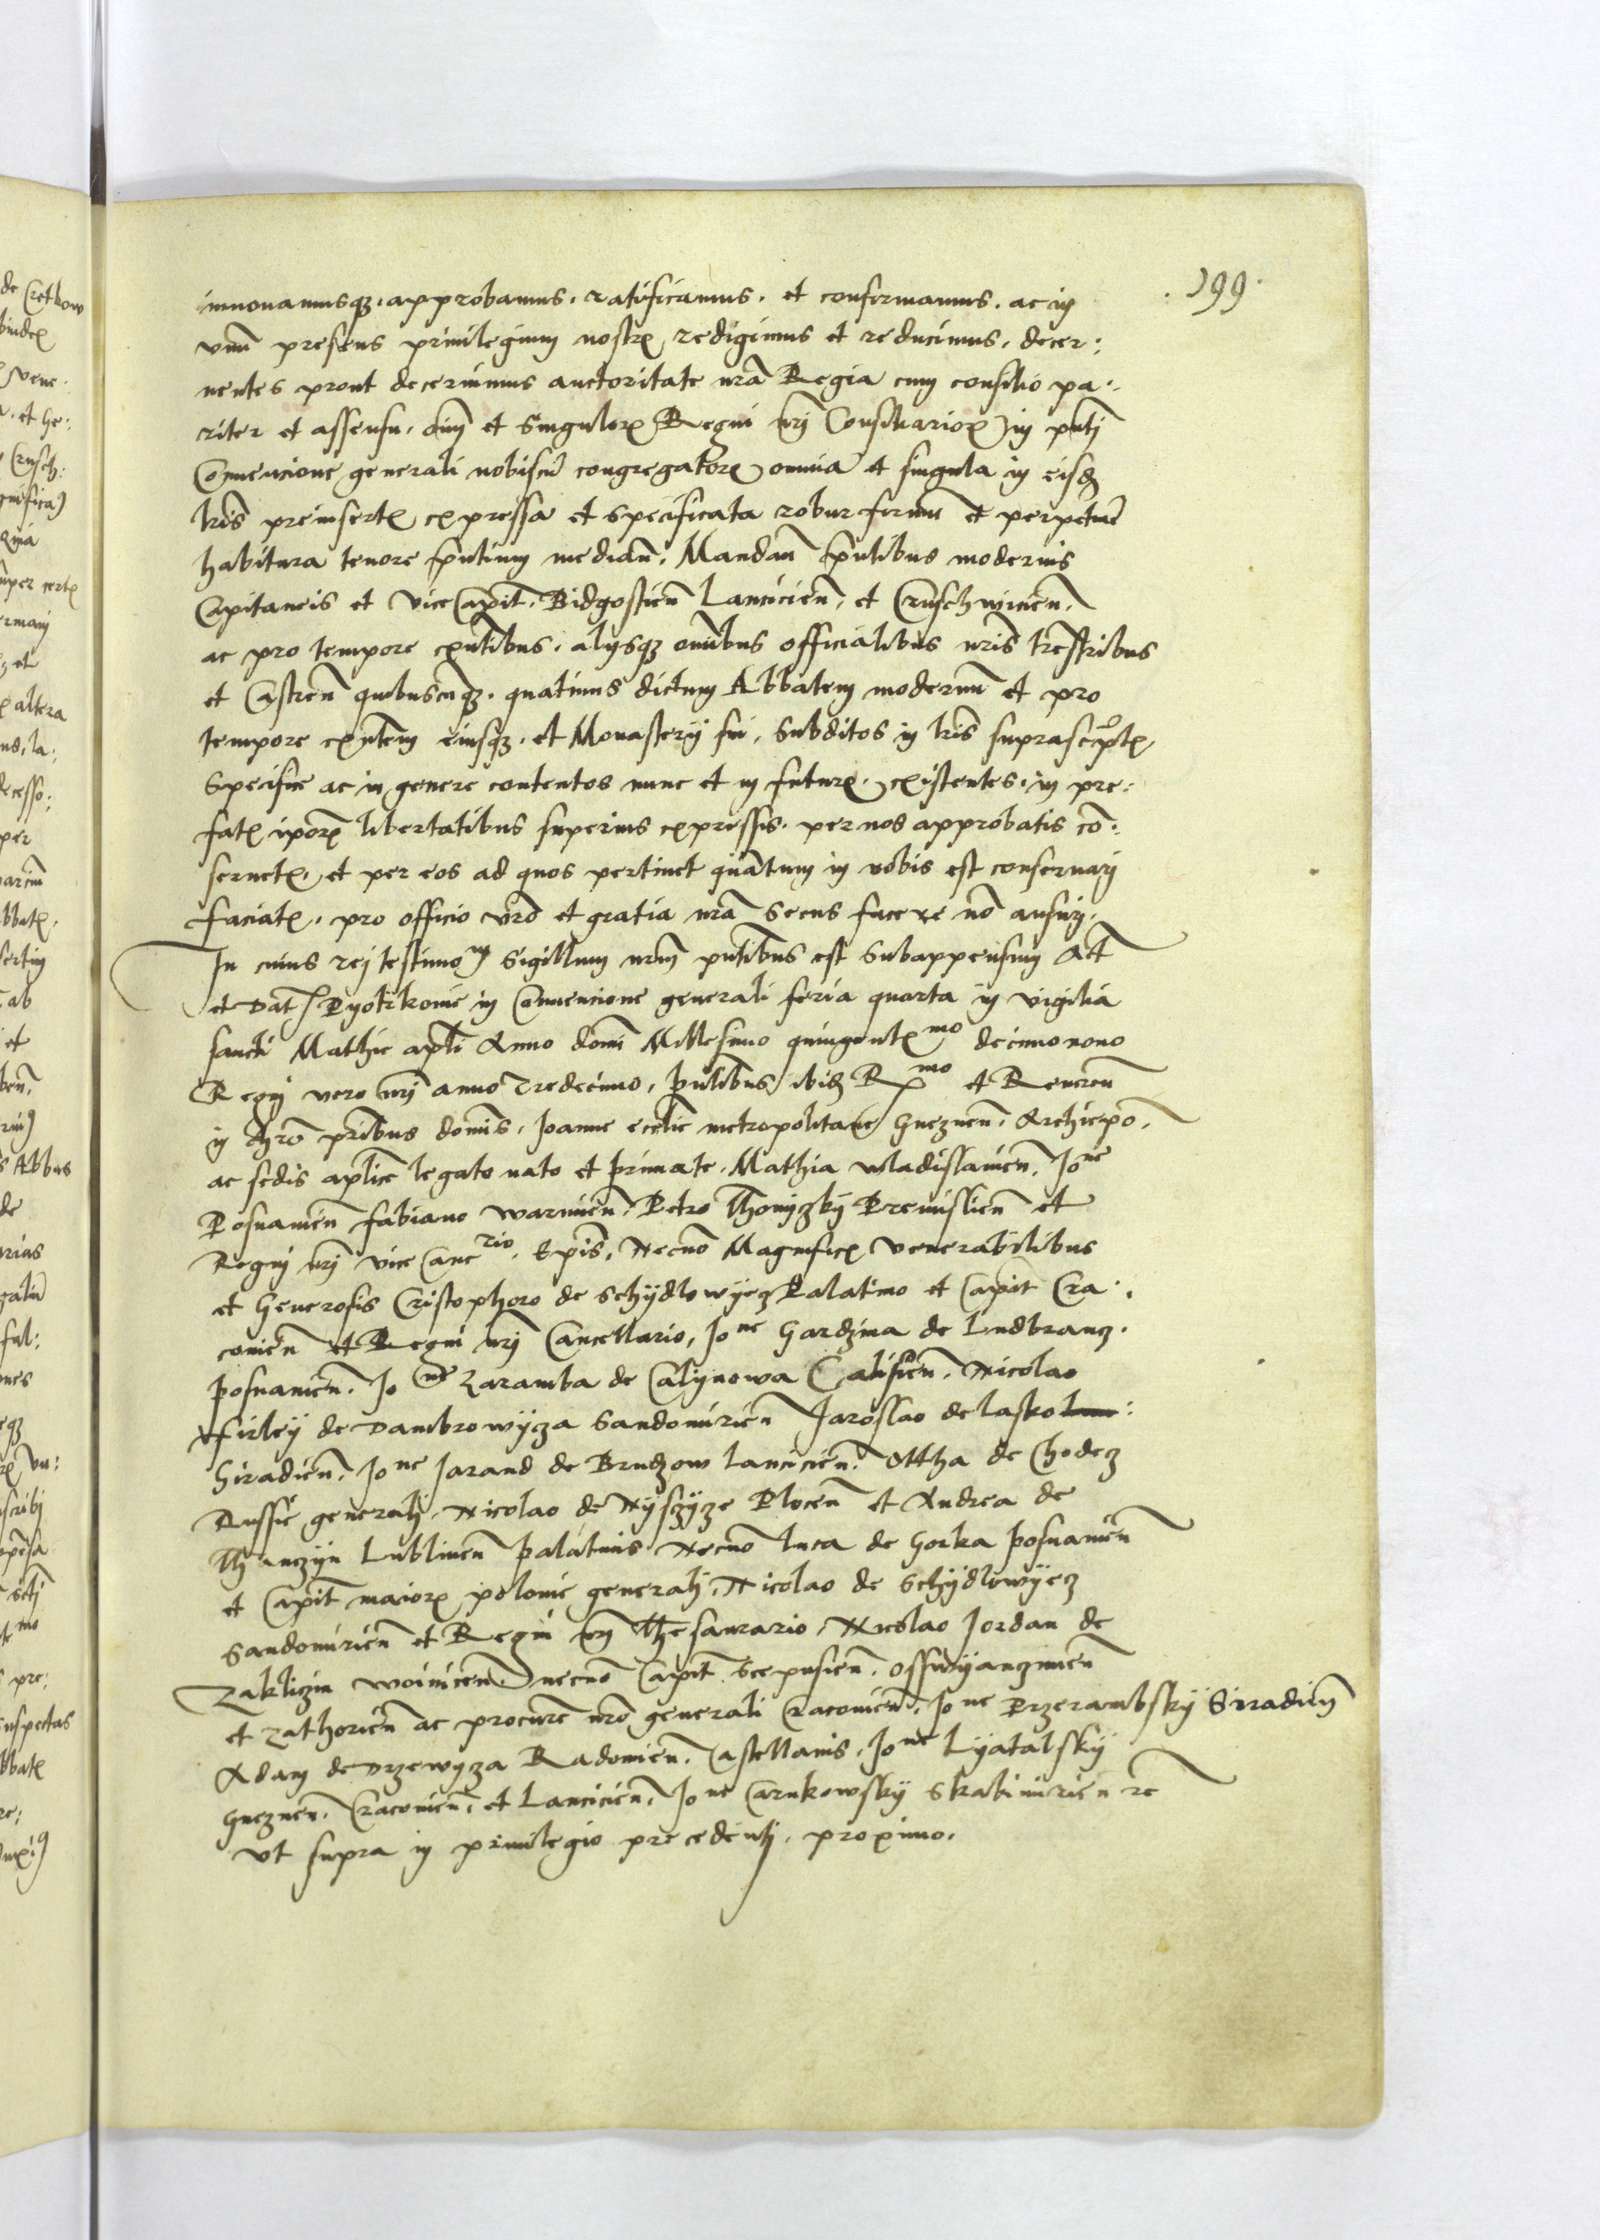 199.
innovamusqz. approbamus. ratificamus. et confirmamus. ac in
unū presens privilegium nostrꝝ redigimus et reducimus. decer:
nentes prout decernimus auctoritate nrā Regia cum consilio pa:
riter et assensu. oīm et singulorꝝ Regni nrj Consiliariorꝝ in pntj
Convencione generali nobiscū congregatorꝝ omnia et singula in eisdē
lrīs preinsertꝭ expressa et specificata robur firmū et perpetuū
habitura tenore pntium mediān. Mandan pntibus modernis
Capitaneis et vice Capit. Bidgostien Lancicien. et Cruschwicien.
ac pro tempore exntibus. alysqz omībus officialibus nris trrestribus
et Castren quibuscūqz. quatinus dictum Abbatem modernū et pro
tempore exntem eiusqz. et Monastery sui. subditos in lrīs suprascptꝭ
specifice ac in genere contentos nunc et in futurꝝ. existentes. in pre:
fatꝭ iporꝝ libertatibus superius expressis. per nos approbatis cō:
servetꝭ. et per eos ad quos pertinet quantum in vobis est conservarj
faciatꝭ. pro officio vrō et gratia nrā secus facere nō ausurj.
In cuius rej testimonm Sigillum nrm pntibus est subappensum Act
et Dat Pyotrkovie in Convencione generali feria quarta in vigilia
sancti Mathie apli Anno domī Millesimo quingentꝭmo decimonono
Regnj vero nrj anno Tredecimo. pntibus ibidē Rmo et Reveren
in chrō pribus domīs. Joanne ecclie metropolitane Gneznen. Archiepō.
ac sedis aplice legato nato et primate. Mathia Wladislavien. Jone
Posnanien fabiano Warmien. Petro Thomyczky Premislien et
Regnj nrj vice Cancrio. Epis. Necnō Magnificꝭ Venerabilibus
et Generosis Cristophoro de Schydlowyecz Palatino et Capit Cra:
covien et Regni nrj Cancellario. Jone Gardzina de Ludbrancz.
Posnanien. Jone Zaramba de Calynowa Calisien. Nicolao
Firley de Dambrowycza Sandomirien Jaroslao de lasko
Siradien. Jone Jarand de Brudzow lancicien. Ottha de Chodecz
Russie generalj Nicolao de Nyszyze Plocen et Andrea de
Thanczyn Lublinen palatinis Necnō luca de Gorka posnanien
et Capit maiorꝝ polonie generalj. Nicolao de Schydlowyecz
Sandomirien et Regni nrj Thesaurario. Nicolao Jordan de
Zakliczin woinicen necnō Capit Scepusien. Osswyanczimen
et Zathorien ac procure nrō generali Cracovien. Jone Przerambsky Siradien
Adam de Drzewycza Radomien. Castellanis. Jone Lyatalsky
Gneznen. Cracovien. et Lancicien. Jone Carnkowsky Skabimirien rc
ut supra in privilegio precedentj. proximo.